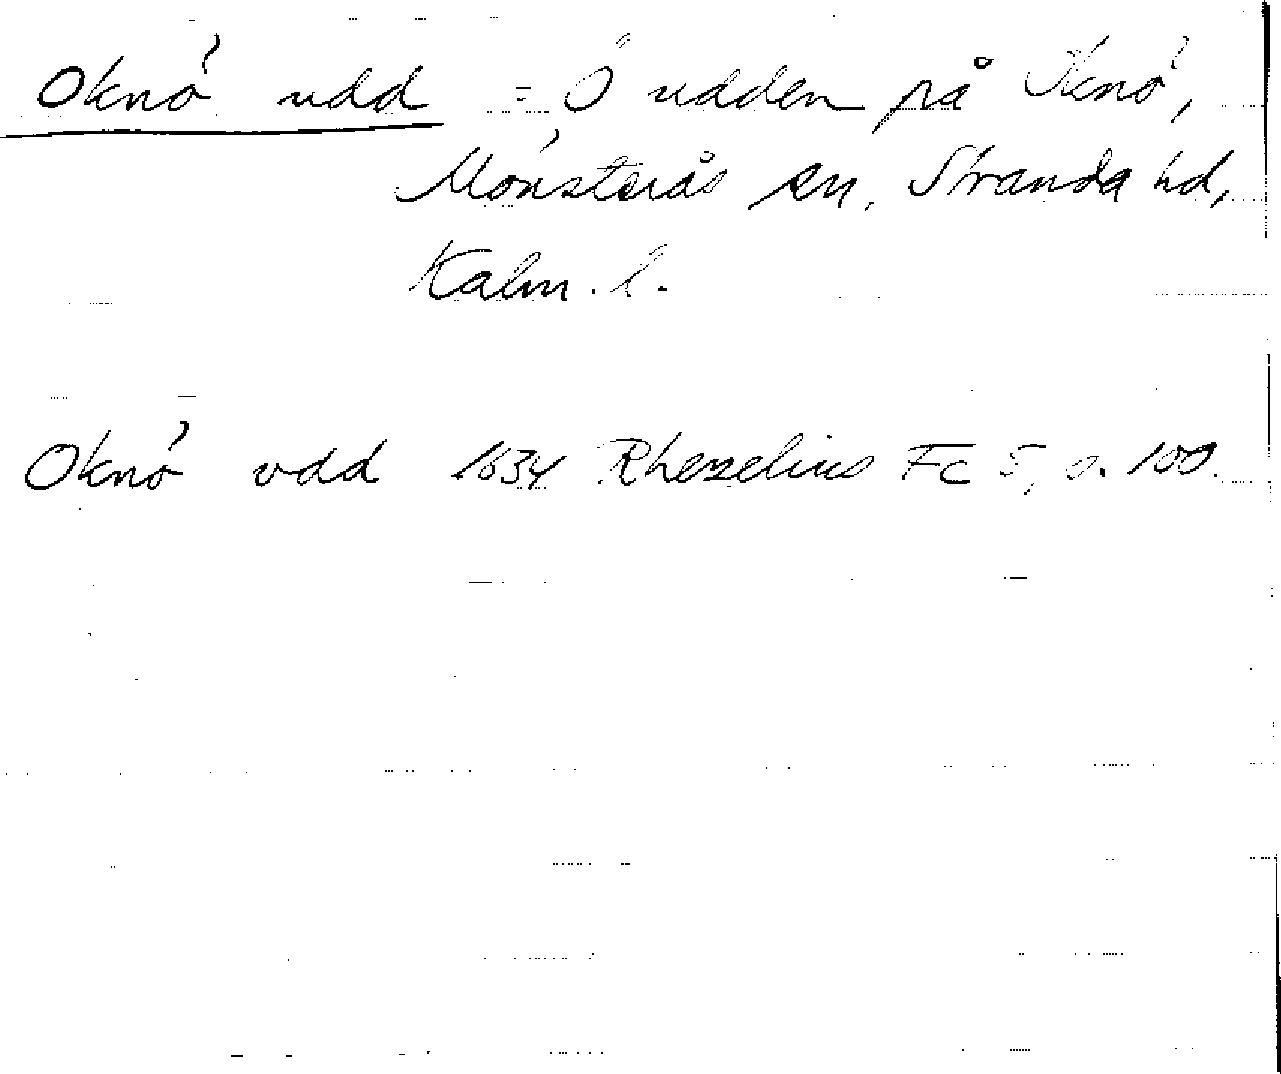 Oknö udd = Ö udden på Oknö,
Mönsterås sn, Stranda hd,
Kalm. l.
Oknö vdd 1634 Rhezelius Fc 5, s. 100.